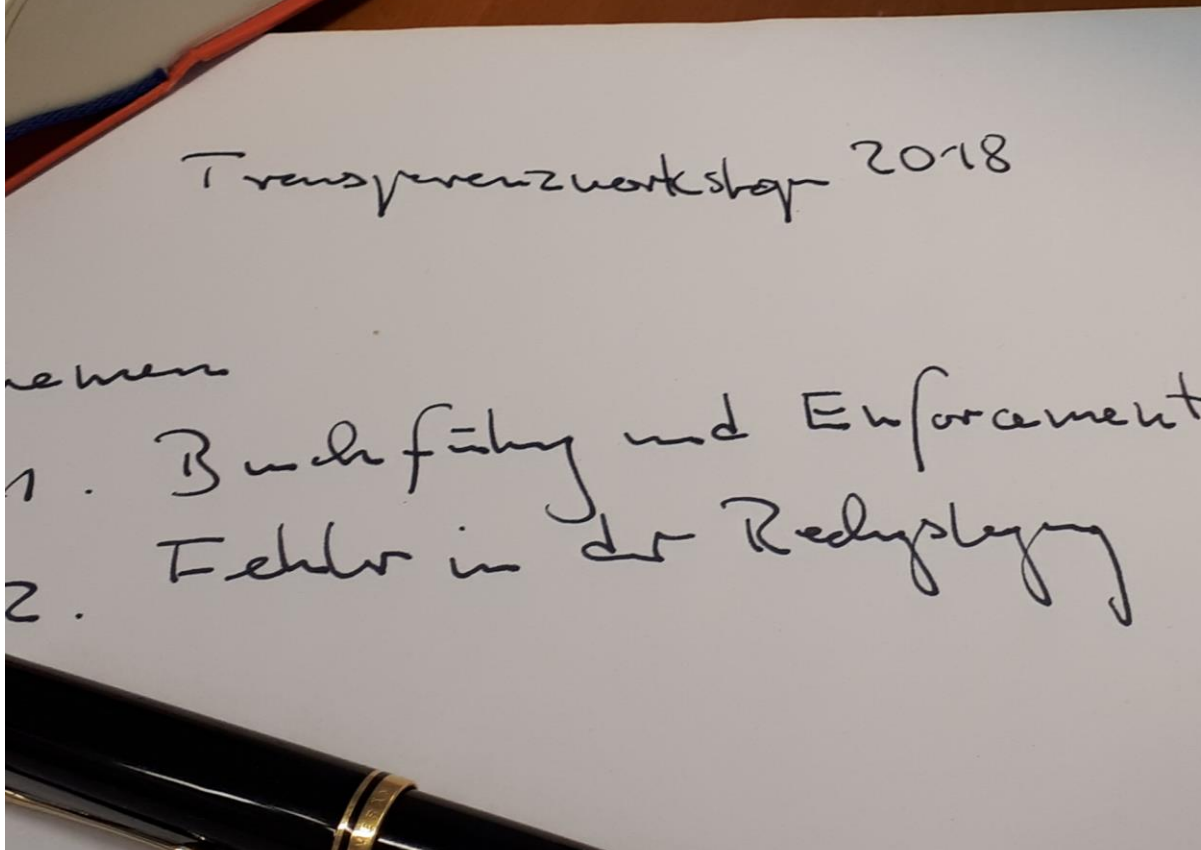 Transparenzworkshop 2018
hemen
1. Buchführung und Enforcement
2. Fehler in der Rechnungslegung